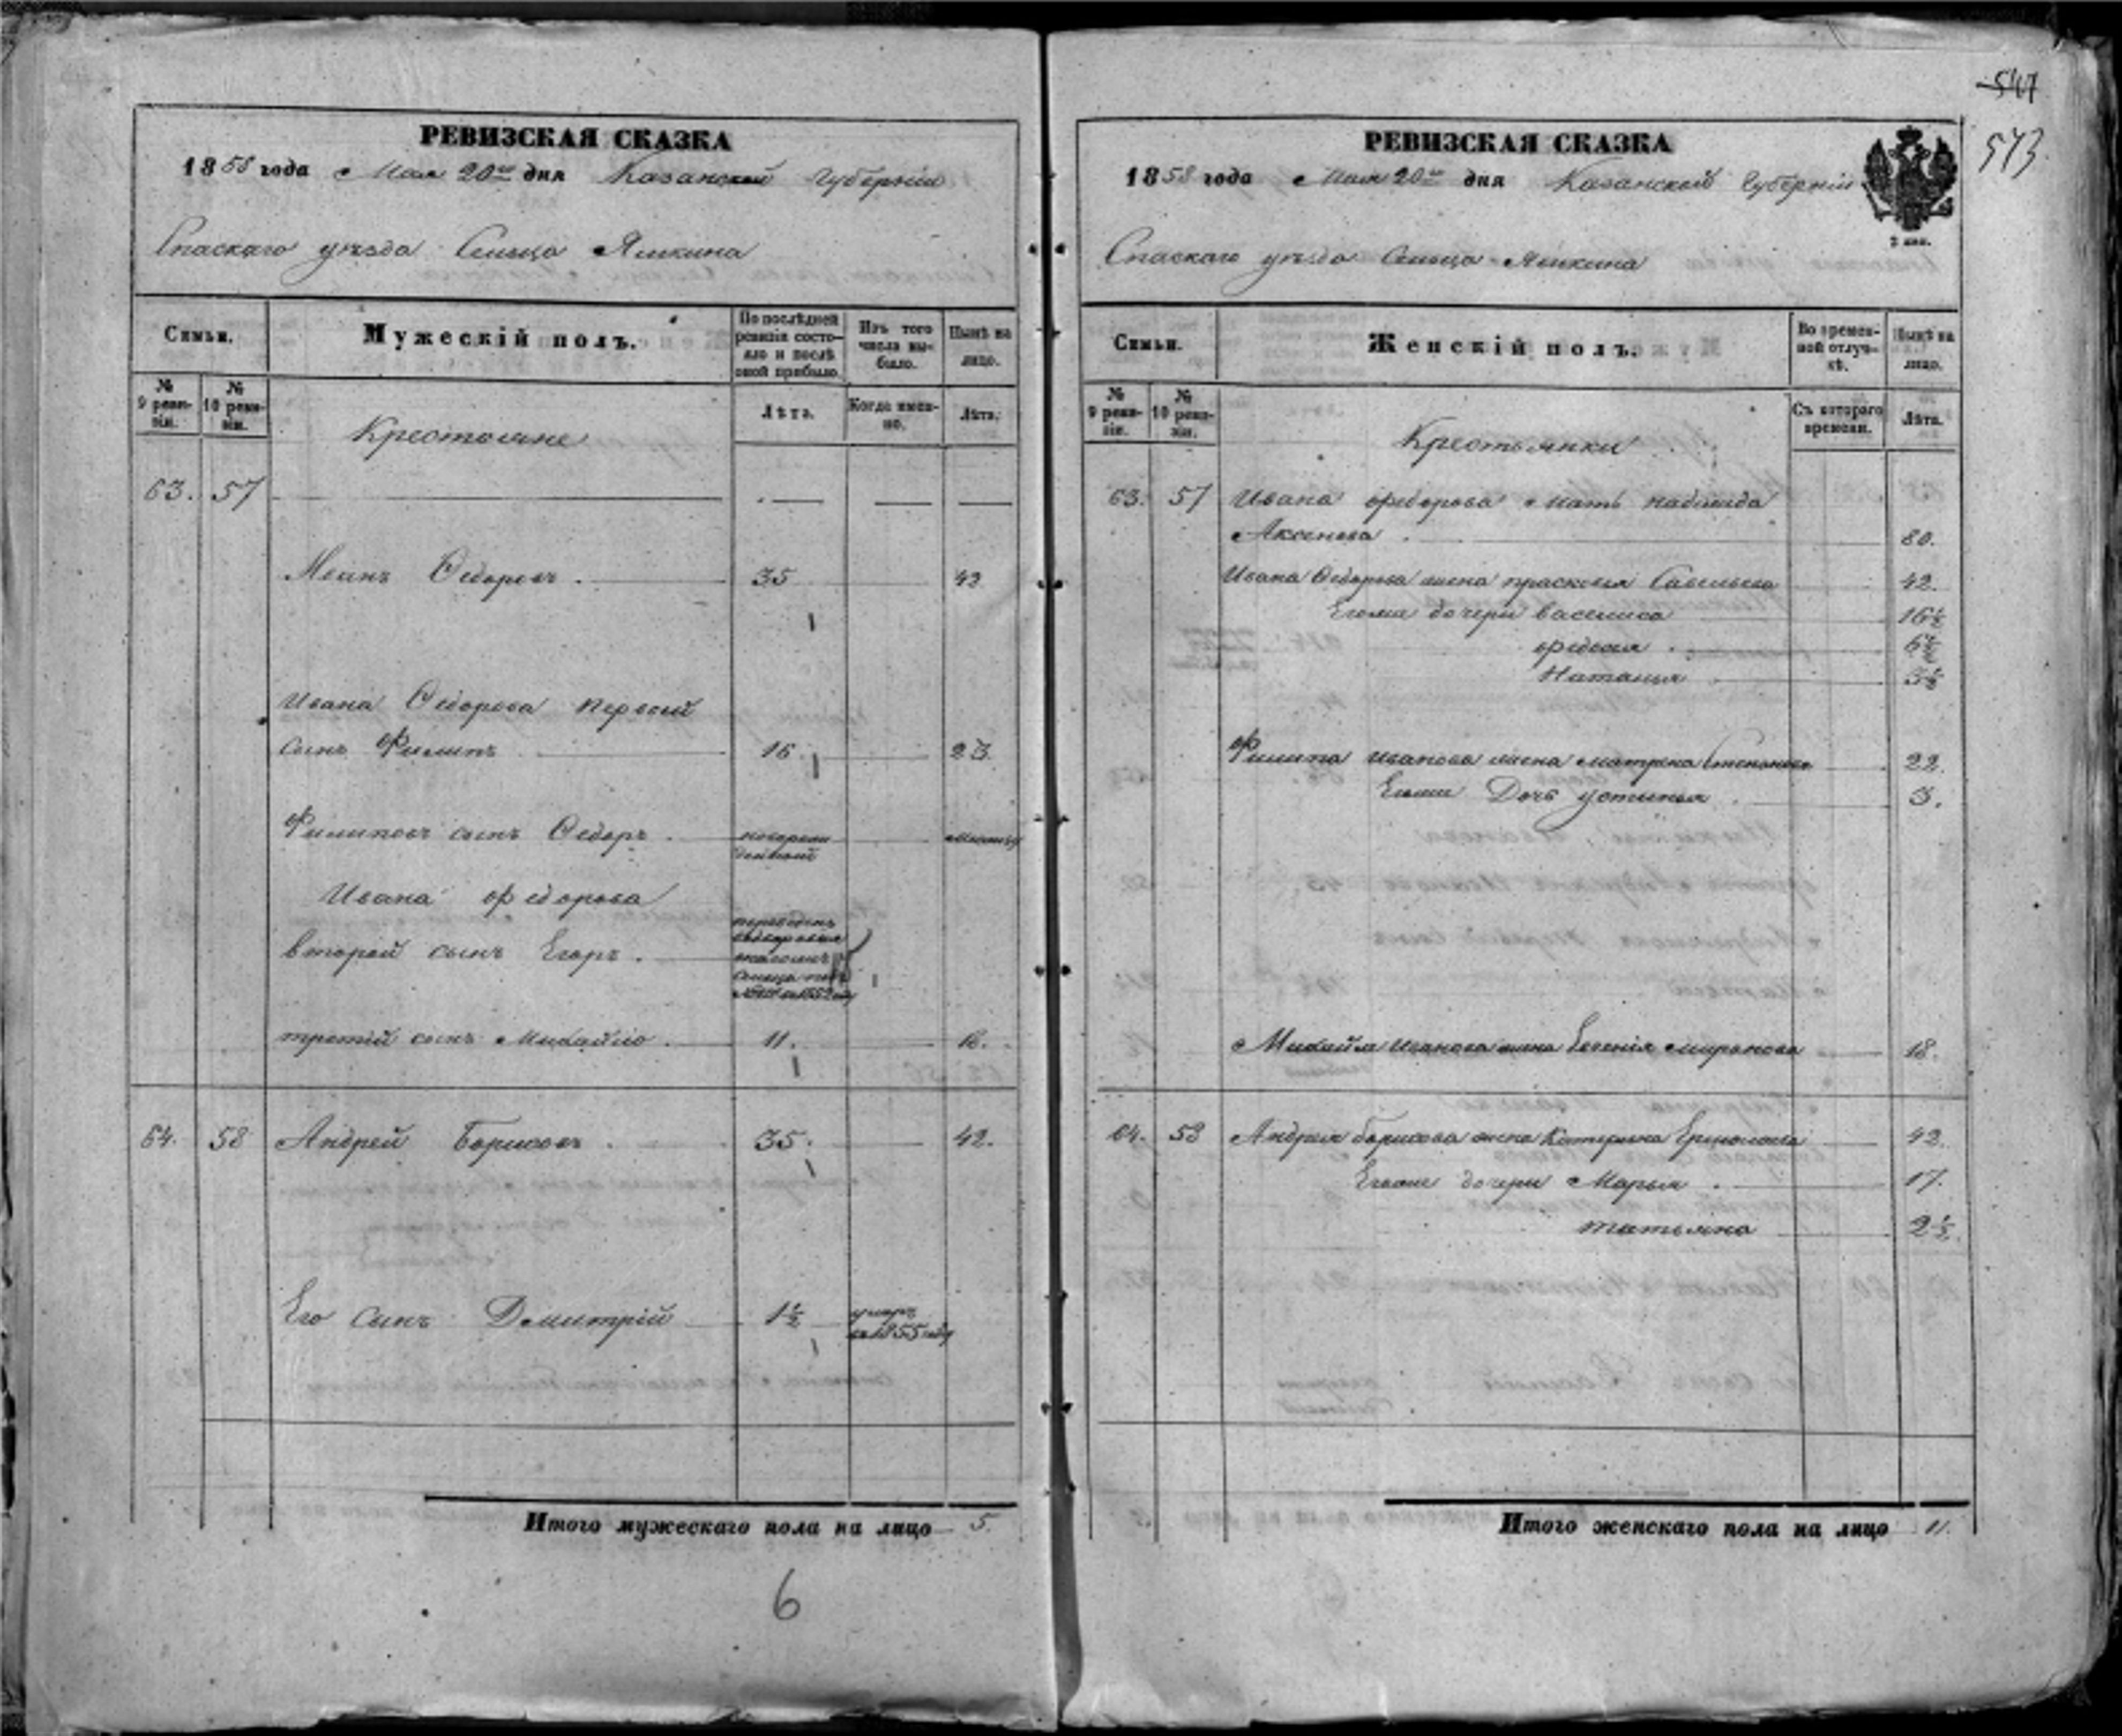 547
573.
РЕВИЗСКАЯ СКАЗКА
1858 года Мая 20го дня Казанской Губерніи
Спаскаго уѣзда Сельца Ямкина
Семьи.
Мужескій полъ.
По послѣдней ревизіи состояло и послѣ оной прибыло.
Изъ того числа выбыло.
Нынѣ на лицо.
№ 9 ревизіи.
№ 10 ревизіи.
Лѣта.
Когда именно.
Лѣта.
Крестьяне
63. 57
Иванъ Ѳедоровъ. 35 42
Ивана Ѳедорова первой
сынъ Филипъ 16. 23.
Филиповъ сынъ Ѳедоръ.
Ивана Федорова
второй сынъ Егоръ.
третій сынъ Михайло. 11. 18.
64. 58 Андрей Борисовъ. 35. 42.
Его сынъ Дмитрій 1½ умеръ
въ 1855 году
Итого мужескаго пола на лицо 5.
6
РЕВИЗСКАЯ СКАЗКА
1858 года Мая 20го дня Казанской Губерніи
Спаскаго уѣзда Сельца Ямкина
Семьи.
Женскій полъ.
Во временной отлучкѣ.
Нынѣ на лицо.
№ 9 ревизіи.
№ 10 ревизіи.
Съ котораго времени.
Лѣта.
Крестьянки
63. 57 Ивана Федорова мать
Аксенова. 80.
Ивана Ѳедорова жена прасковья Савельева 42.
Егоже дочери василиса 16½
федосья. 6½
Наталья 3½
Филипа Иванова жена матрена Степанова 22.
Егоже Дочь устинья. 3.
Михайла Иванова жена Евгенія миронова 18.
64. 58 Андрея борисова жена Катерина Ермолаева 42.
Егоже дочери Марья. 17.
татьяна 2½
Итого женскаго пола на лицо 11.